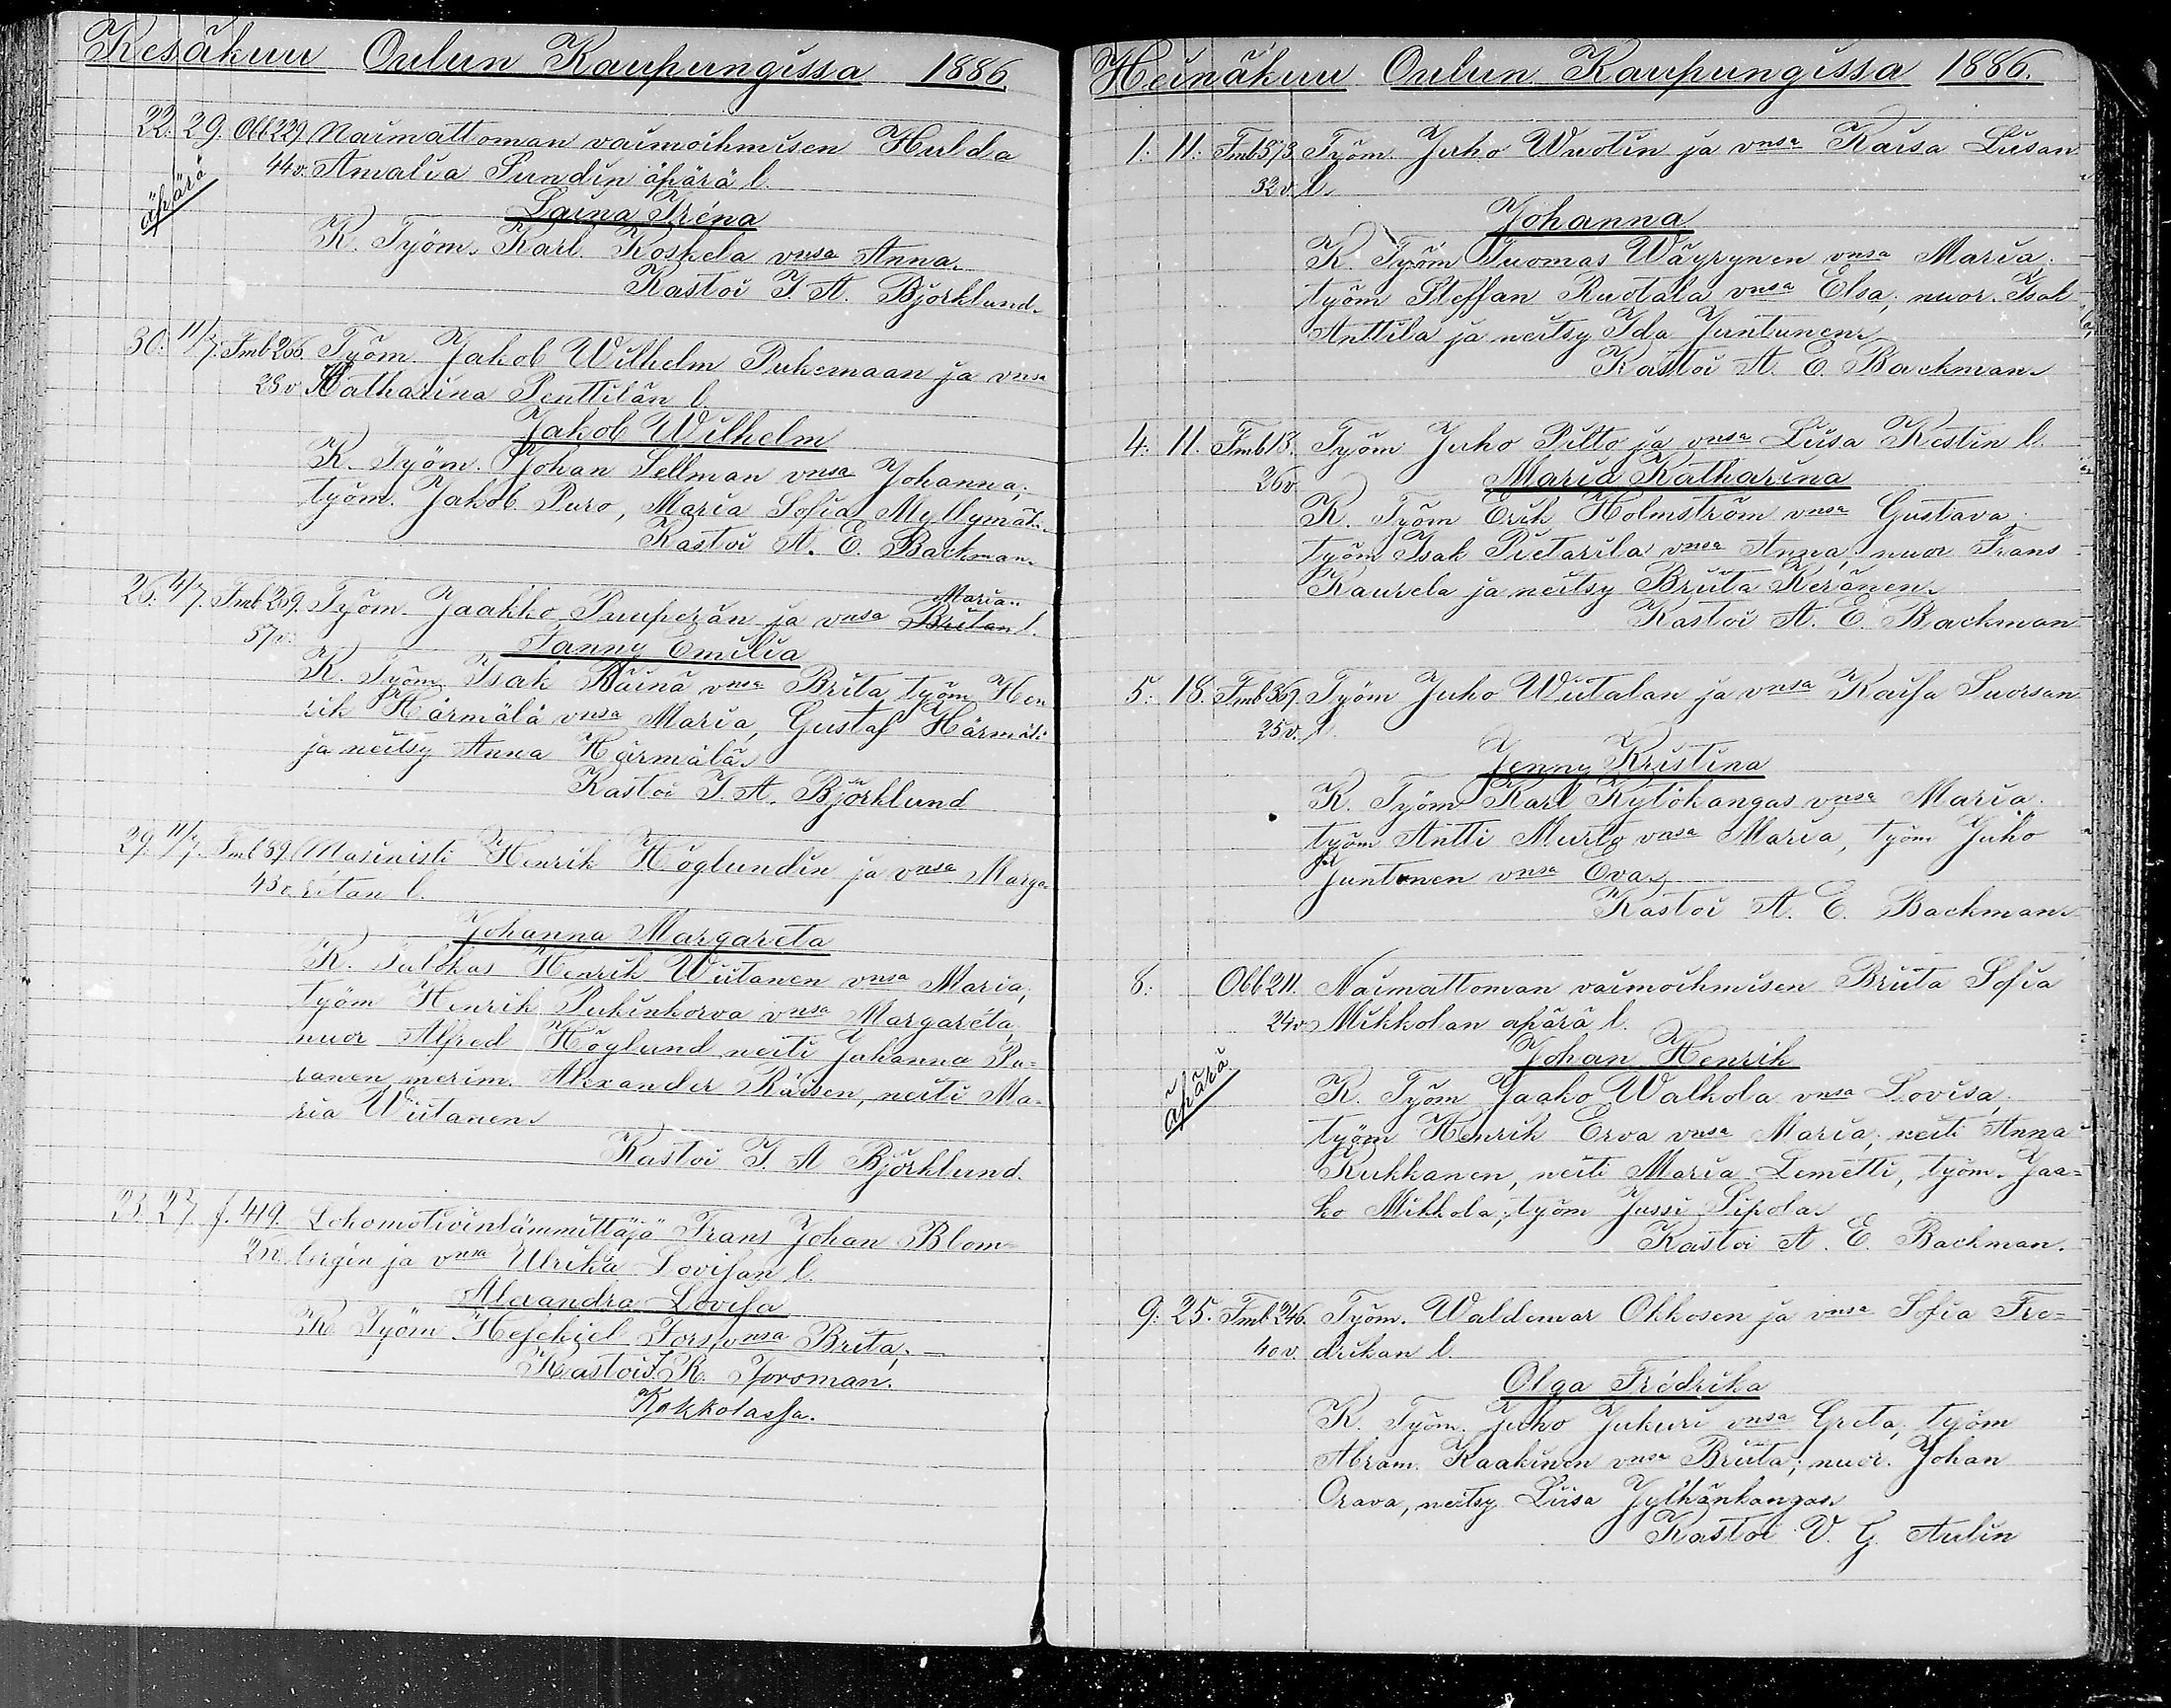 Kesäkuu Oulun Kaupungissa 1886.
22. 29. Obb 229. Naimattoman vaimoihmisen Hulda
44 v. Amalia Sundin äpärä l.
äpärä
Laina Iréna
K. Työm. Karl Koskela vnsa Anna.
Kastoi J. A. Björklund.
30. 11/7. Tmb 206. Työm Jakob Wilhelm Pukemaan ja vnsa
28 v Katharina Penttilän l.
Jakob Wilhelm
K. Työm. Johan Sellman vnsa Johanna;
työm. Jakob Puro, Maria Sofia Myllymäki.
Kastoi A. E. Backman.
26. 4/7. Tmb 269. Työm. Jaakko Puuperän ja vnsa Britan l.
Maria
37 v.
Fanny Emilia
K. Työm. Isak Räinä vnsa Brita, työm Hen
rik Härmälä vnsa Maria, Gustaf Härmälä
ja neitsy Anna Härmälä.
Kastoi J. A. Björklund
29. 11/7. Tmb 89. Masinisti Henrik Höglundin ja vnsa Marga
43 v. retan l.
Johanna Margareta
K. Talokas Henrik Wiitanen vnsa Maria;
työm Henrik Pukinkorva vnsa Margaréta,
nuor Alfred Höglund neiti Johanna Pu=
ranen merim. Alexander Räisen, neiti Ma=
ria Wiitanen.
Kastoi J. A Björklund.
23. 27. f. 419. Lokomotivinlämmittäjä Frans Johan Blom
bergin ja vnsa Ulrika Lovisan l.
Alexandra Lovisa
K Työm Hesekiel Fors, vnsa Brita;
Kastoi J. K. Forsman.
Kokkolassa.
Heinäkuu Oulun Kaupungissa 1886.
1: 11: Tmb 373 Työm. Juho Wuotin ja vnsa Kaisa Liisan
32 v. l.
Johanna
K. Työm Tuomas Wäyrynen vnsa Maria.
työm Steffan Ruotala vnsa Elsa; nuor. Isak
Anttila ja neitsy Ida Juntunen.
Kastoi A. E. Backman.
4: 11. Tmb 13. Työm Juho Pilto ja vnsa Liisa Kestin l.
26 v.
Maria Katharina
K. Työm Erik Holmström vnsa Gustava;
työm Isak Pietarila vnsa Anna; nuor Frans
Kaurela ja neitsy Briita Keränen.
Kastoi A. E. Backman
5: 18. Tmb 367. Työm Juho Wiitalan ja vnsa Kaisa Suorsan
25 v. l.
Jenny Kristina
K. Työm Karl Kylökangas vnsa Maria.
työm Antti Murto vnsa Maria, työm Juho
Juntunen vnsa Eva.
Kastoi A. E. Backman.
8: Obb 211. Naimattoman vaimoihmisen Briita Sofia
24 v. Mikkolan äpärä l.
äpärä
Johan Henrik
K. Työm Jaako Walkola vnsa Lovisa;
työm Henrik Erva vnsa Maria; neiti Anna
Kukkanen, neiti Maria Lemetti, työm. Jaa=
ko Mikkola; työm Jussi Sipola.
Kastoi A. E. Backman.
9: 25. Tmb 246. Työm. Waldemar Okkosen ja vnsa Sofia Fre=
40 v. drikan l.
Olga Fredrika
K. Työm. Juho Jukuri vnsa Greta; työm
Abram. Kaakinen vnsa Briita; nuor. Johan
Orava, neitsy Liisa Jylhänkangas.
Kastoi V. G. Aulin